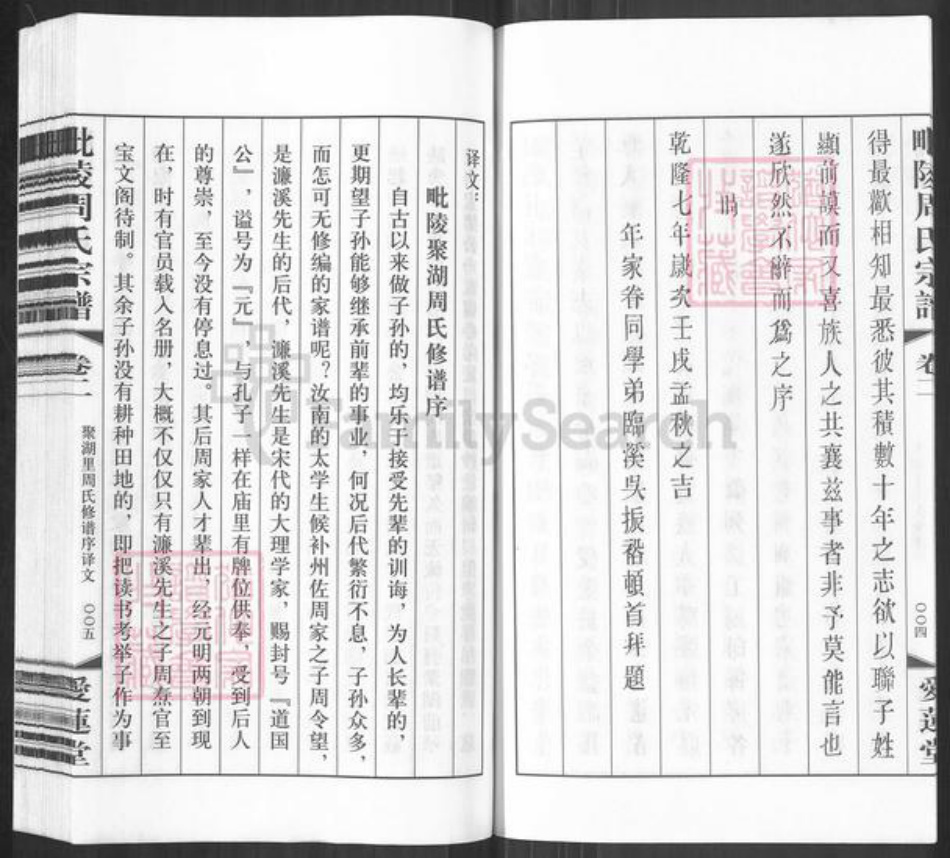 毗陵周氏宗譜
卷二
〇〇四
愛蓮堂
得最歡相知最悉彼其積數十年之志欲以聯子姓
顯前謨而又喜族人之共襄兹事者非予莫能言也
遂欣然不辭而爲之序
時
乾隆七年歲次壬戌孟秋之吉
年家眷同學弟臨溪吳振 頓首拜題
译文：
毗陵聚湖周氏修谱序
自古以来做子孙的，均乐于接受先辈的训诲，为人长辈的，
更期望子孙能够继承前辈的事业，何况后代繁衍不息，子孙众多，
而怎可无修编的家谱呢？汝南的太学生候补州佐周家之子周令望，
是濂溪先生的后代，濂溪先生是宋代的大理学家，赐封号『道国
公』，谥号为『元』，与孔子一样在庙里有牌位供奉，受到后人
的尊崇，至今没有停息过。其后周家人才辈出，经元明两朝到现
在，时有官员载入名册，大概不仅仅只有濂溪先生之子周焘官至
宝文阁待制。其余子孙没有耕种田地的，即把读书考举子作为事
毗陵周氏宗譜
卷二
聚湖里周氏修谱序译文
〇〇五
愛蓮堂
FamilySearch